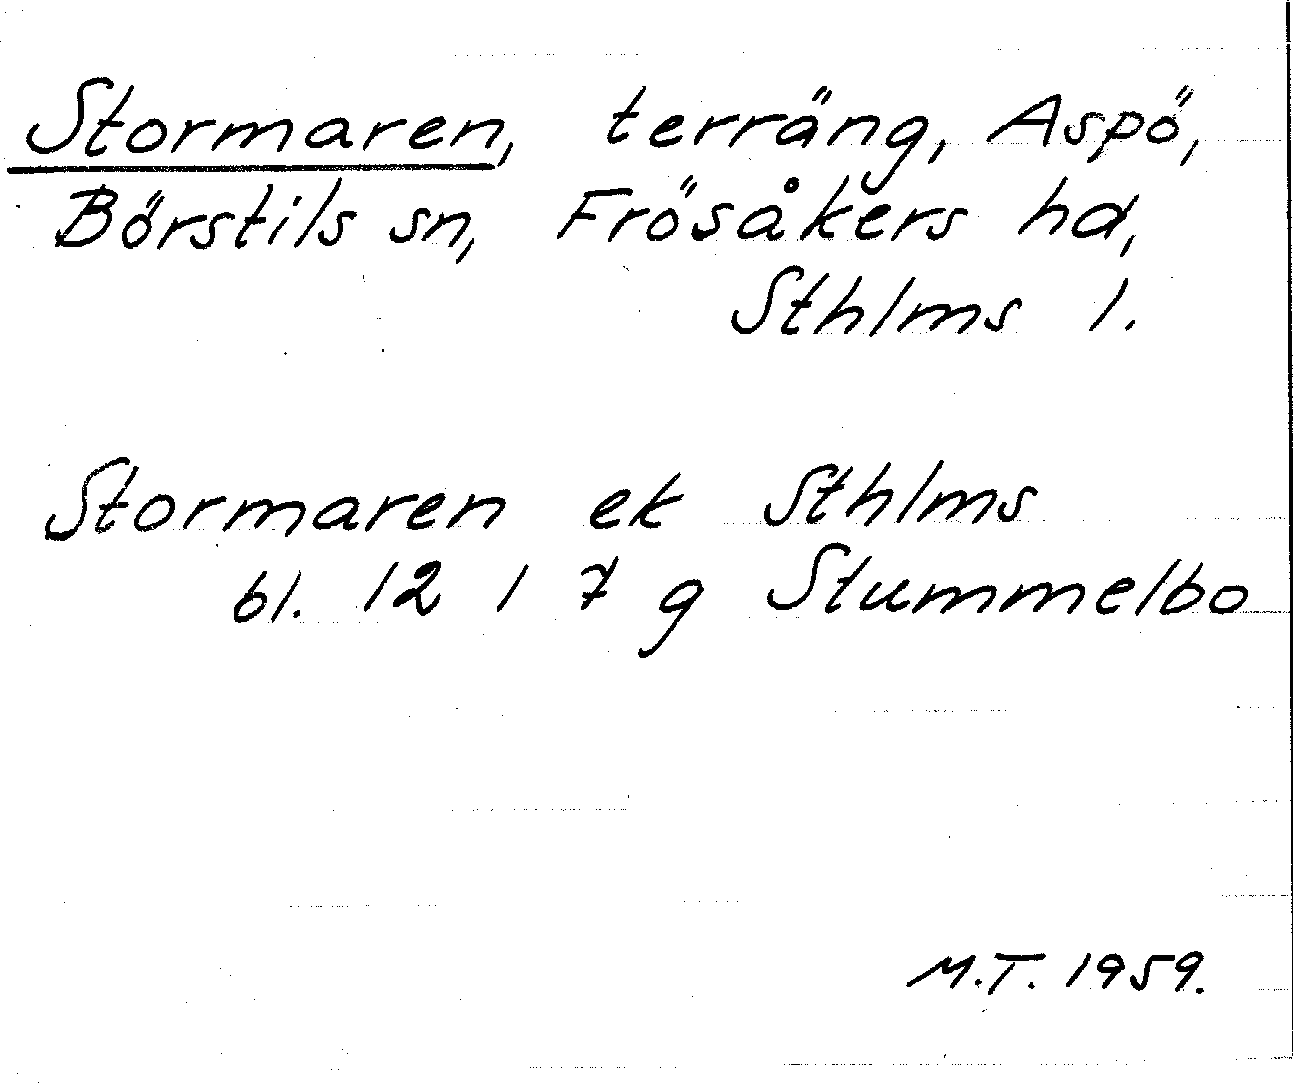 Stormaren, terräng, Aspö,
Börstils sn, Frösåkers hd,
Sthlms l.
Stormaren ek Sthlms
bl. 12 I 7 g Stummelbo
M.T. 1959.